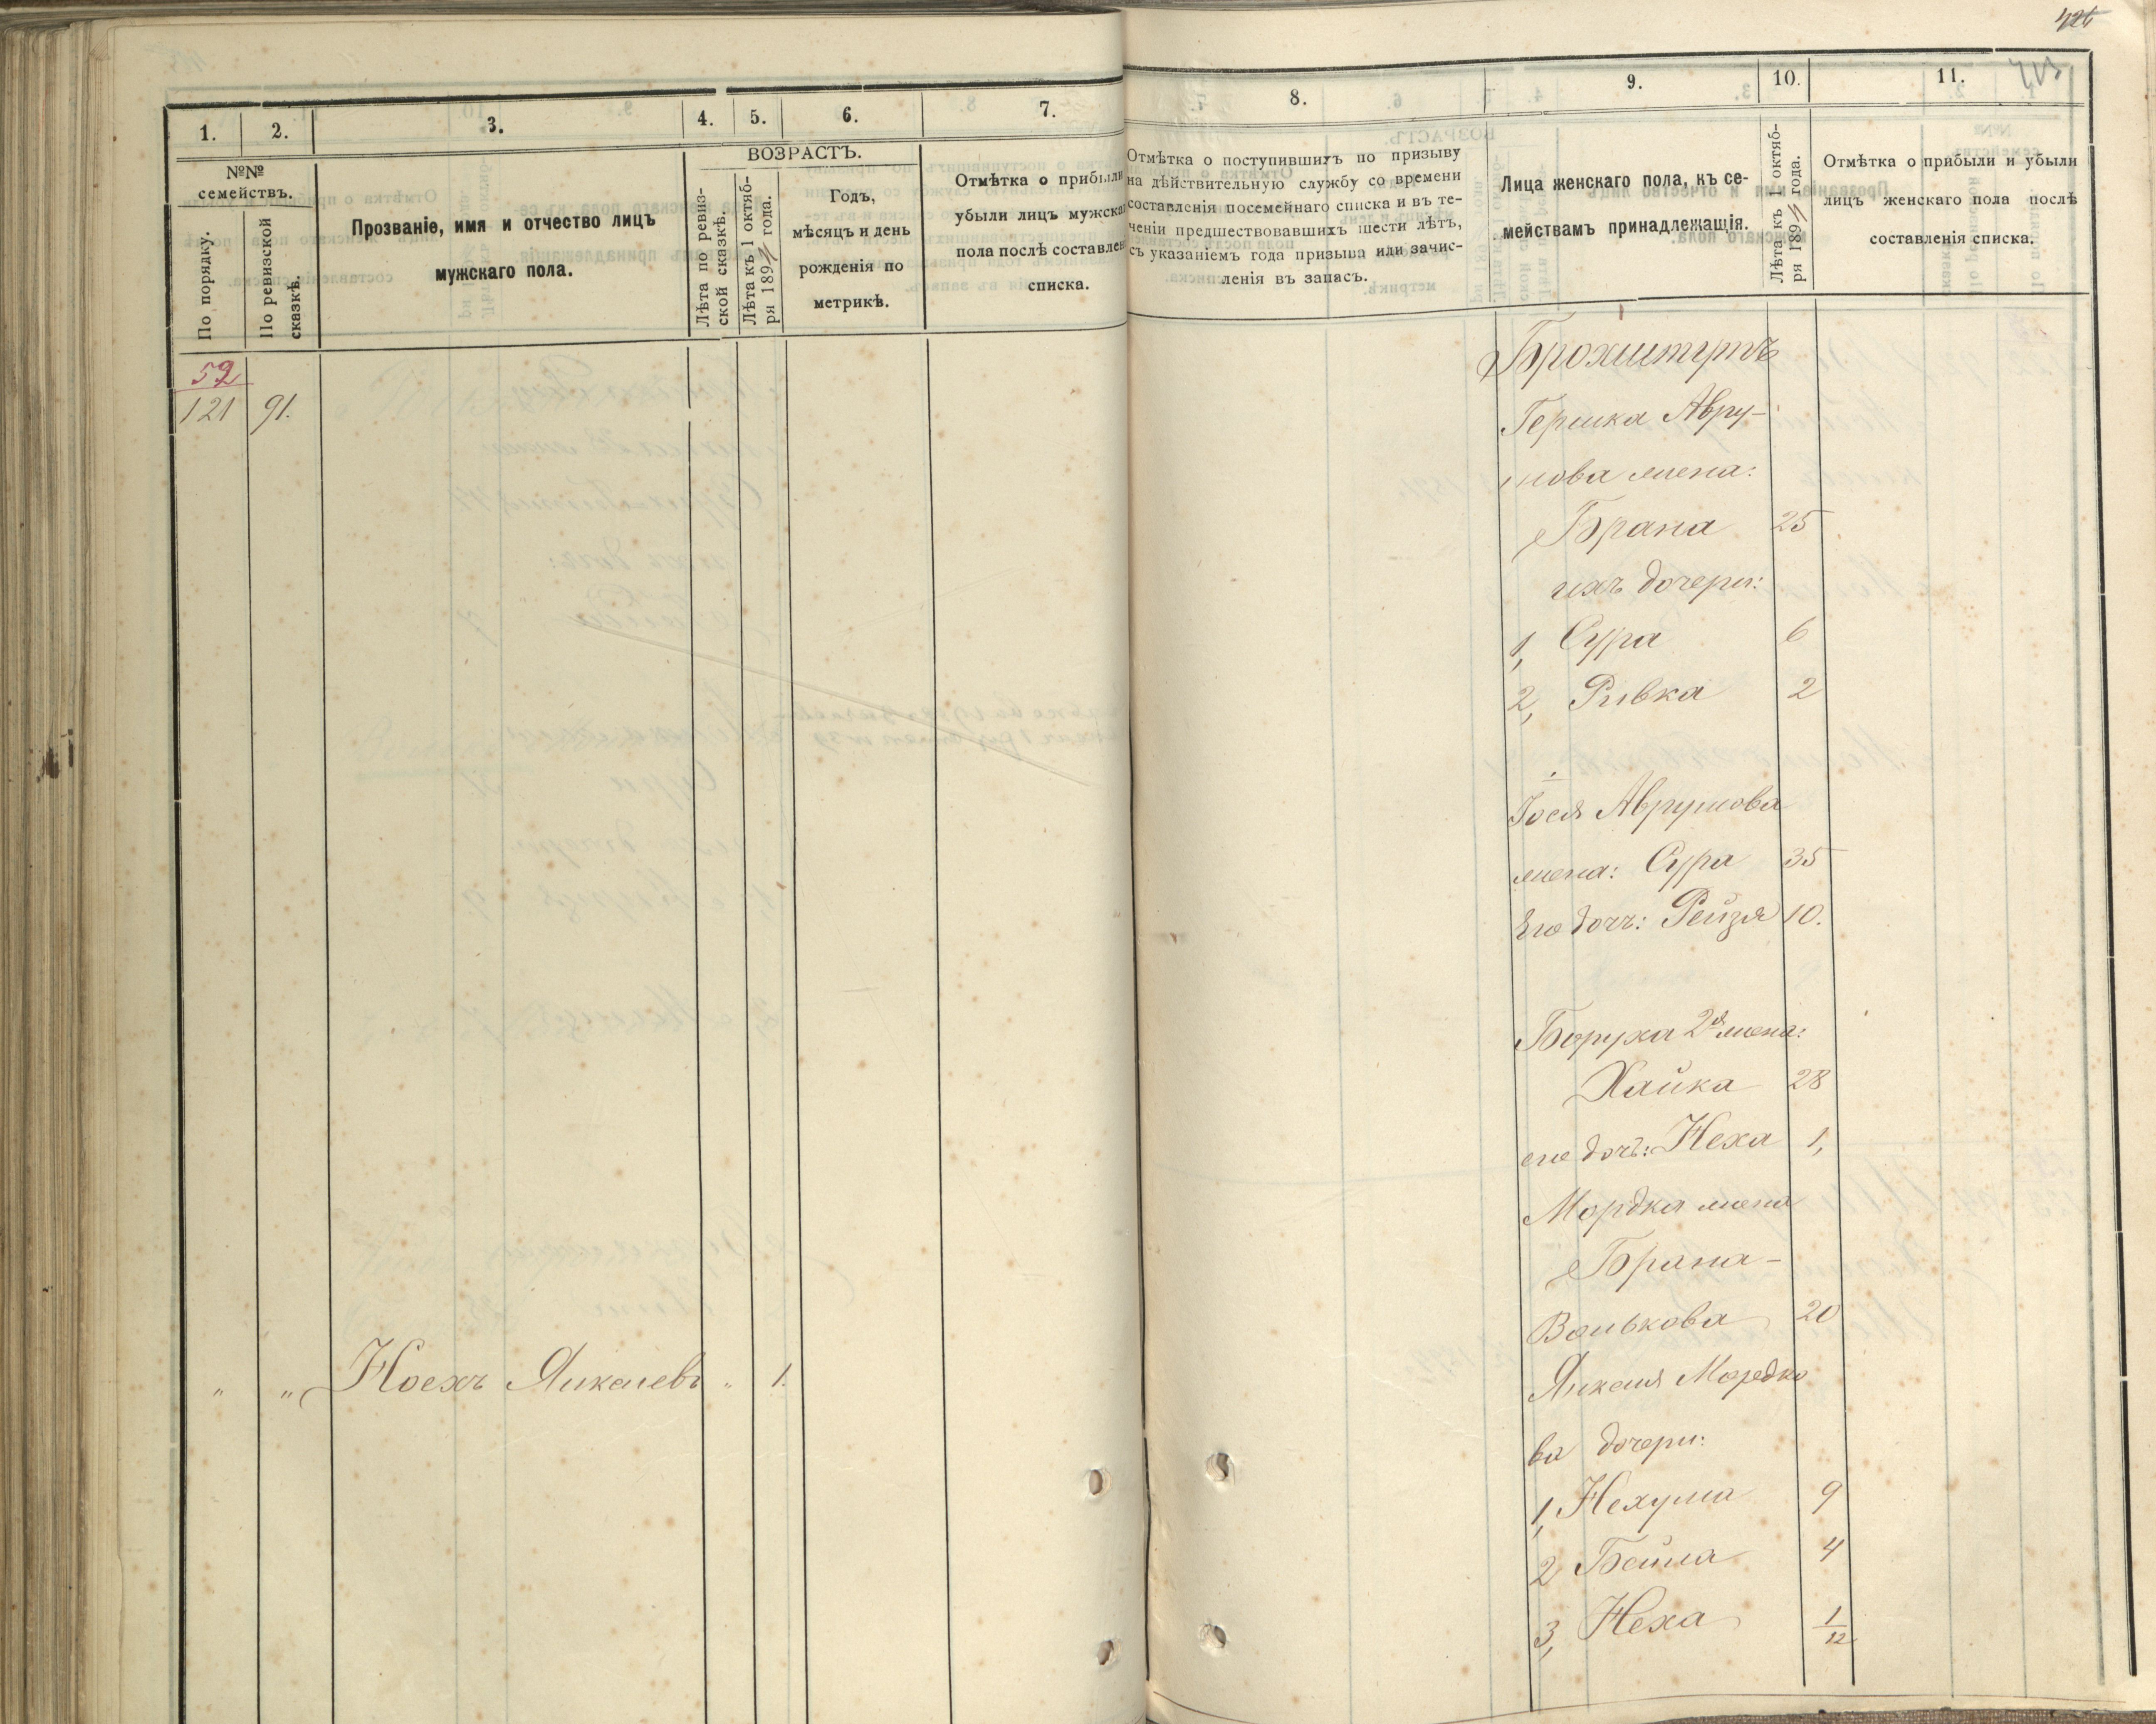 426
1.
2.
3.
4.
5.
6.
7.
№№
семействъ.
По порядку.
По ревизской
сказкѣ.
Прозваніе, имя и отчество лицъ
мужскаго пола.
ВОЗРАСТЪ.
Лѣта по ревиз-
ской сказкѣ.
Лѣта къ 1 октяб-
ря 189 года.
Годъ,
мѣсяцъ и день
рожденія по
метрикѣ.
Отмѣтка о прибыли
убыли лицъ мужска
пола послѣ составлен
списка.
52
121 91.
" " Ноехъ Янкелевъ " 1.
8.
9.
10.
11.
Отмѣтка о поступившихъ по призыву
на дѣйствительную службу со времени
составленія посемейнаго списка и въ те-
ченіи предшествовавшихъ шести лѣтъ,
съ указаніемъ года призыва или зачис-
ленія въ запасъ.
Лица женскаго пола, къ се-
мействамъ принадлежащія.
Лѣта къ 1 октяб-
ря 189 года.
Отмѣтка о прибыли и убыли
лицъ женскаго пола послѣ
составленія списка.
Гершка Авру-
мова жена:
Брана 25
ихъ дочери:
1, Сура 6
2, Ривка 2
Іося Аврумова
жена: Сура 35
Его дочь: Рейзя 10.
Боруха 2я жена:
Хайка 28
его дочь: Неха 1,
Мордка жена
Брана-
Волькова 20
Янкеля Мордко
ва дочери:
1, Нехума 9
2 Бейла 4
3, Неха 1/12